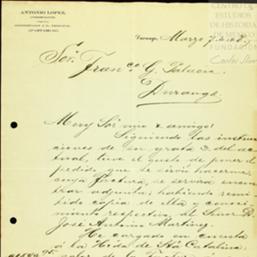 ANTONIO LOPEZ
CENTRO DE
ESTUDIOS
DE HISTORIA
DE MEXICO
FUNDACIÓN
Carlos Slim
Marzo 7
Sor. Franco G. Palacio
Durango
Muy Sor mio & amigo:
Siguiendo las instruc
ciones de su grata 3 del ac
tual, tuve el gusto de poner el
pedido que se sirvió hacerme,
cuya factura, se servirá encon
trar adjunta; habiendo remi
tido copia de ella y conoci
miento respectivo, al Señor D.
José Antonio Martinez.
He cargado en cuenta
á la Hda de Sta Catalina